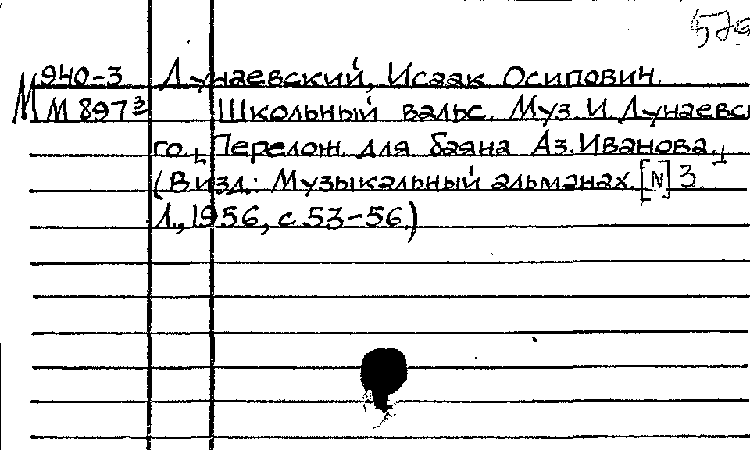 940-3 Дунаевский, Исаак Осипович.
М М 897³ Школьный вальс. Муз. И. Дунаевско
го. [Перелож. для баяна Аз. Иванова.]
(В изд.: Музыкальный альманах. [N] 3
Л., 1956, с. 53-56.)